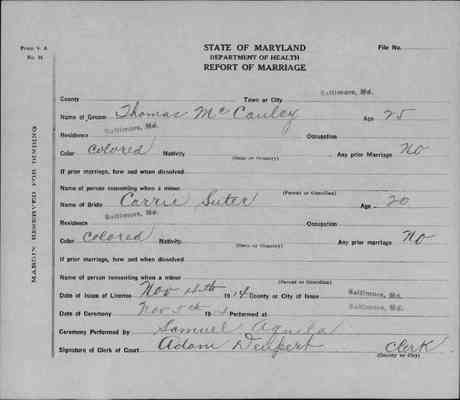 Form V. S.
STATE OF MARYLAND
DEPARTMENT OF HEALTH
REPORT OF MARRIAGE
File No.
MARGIN RESERVED FOR BINDING
County Town or City Baltimore, Md.
Name of Groom Thomas McCauley Age 25
Residence Baltimore, Md. Occupation
Color Colored Nativity (State or Country) Any prior Marriage No
If prior marriage, how and when dissolved
Name of person consenting when a minor (Parent or Guardian)
Name of Bride Carrie Suter Age 20
Residence Baltimore, Md. Occupation
Color Colored Nativity (State or Country) Any prior marriage No
If prior marriage, how and when dissolved
Name of person consenting when a minor (Parent or Guardian)
Date of Issue of License Nov 1914 County or City of Issue Baltimore, Md.
Date of Ceremony Nov 5th 19 Performed at Baltimore, Md.
Ceremony Performed by Samuel Aquila
Signature of Clerk of Court Adam Deupert Clerk
(County or City)